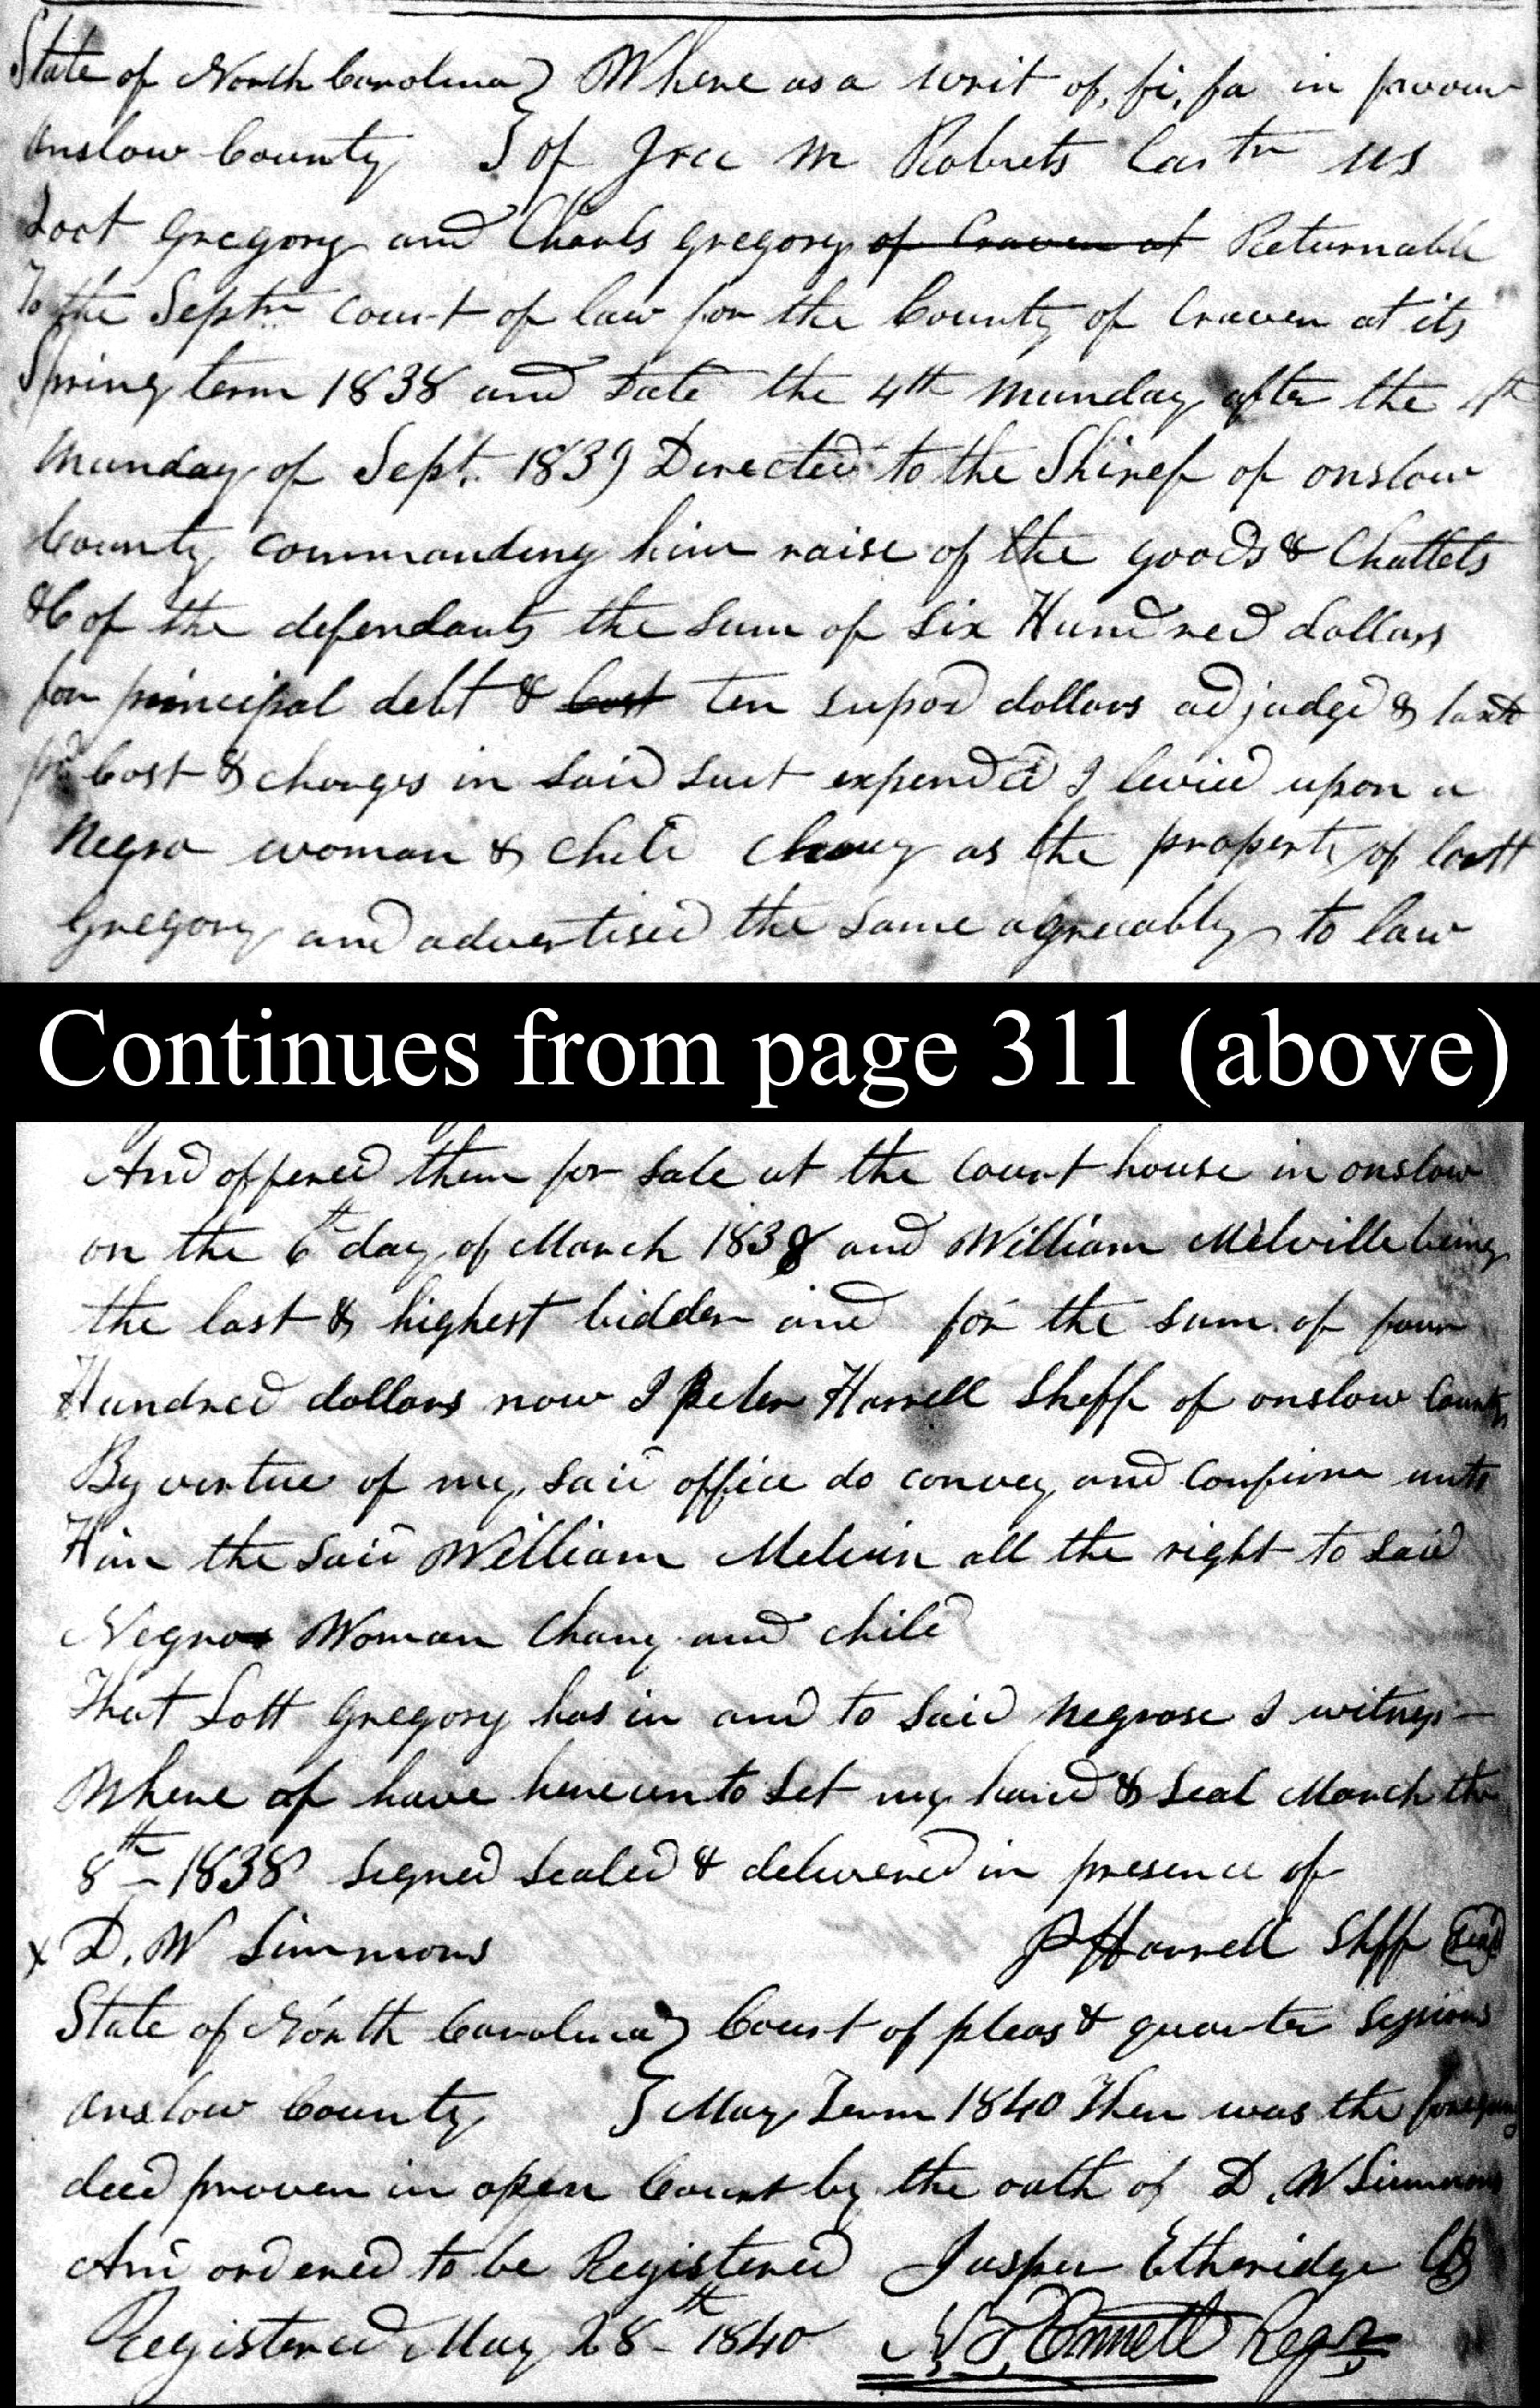 State of North Carolina } Whereas a writ of, fi, fa in favour
Onslow County } of M Robrets vs
Loot Gregory and Charls Gregory of Craven at Returnable
To the Septr court of law for the County of Craven at its
Spring term 1838 and date the 4th Munday after the 4th
Munday of Sept. 1839 Directed to the Shiref of onslow
County commanding him raise of the goods & Chattels
&C of the defendants the sum of Six Hundred dollars
for principal debt & Cost ten dollars adjudge &
Cost & charges in said suit expended I levied upon a
Negro woman & child Chany as the property of Lott
Gregory and advertised the same agreeably to law
Continues from page 311 (above)
And offered them for sale at the court house in onslow
on the 6th day of March 1838 and William Melville being
the last & highest bidder and for the sum of four
Hundred dollars now I Peter Harrell Sheff of onslow County
By virtue of my said office do convey and confirm unto
Him the said William Melvin all the right to said
Negro Woman Chany and child
That Lott Gregory has in and to said negrose I witness
Where of have hereunto set my hand & seal March the
8th 1838 signed sealed & delivered in presence of
x D. W Simmons P Harrell Shff Seal
State of North Carolina } Court of pleas & quarter sessions
Onslow County } May Term 1840 Then was the foregoing
deed proven in open Court by the oath of D. W Simmons
And ordered to be Registered Jasper Etheridge Clk
Registered May 28th 1840 Ennett Regr